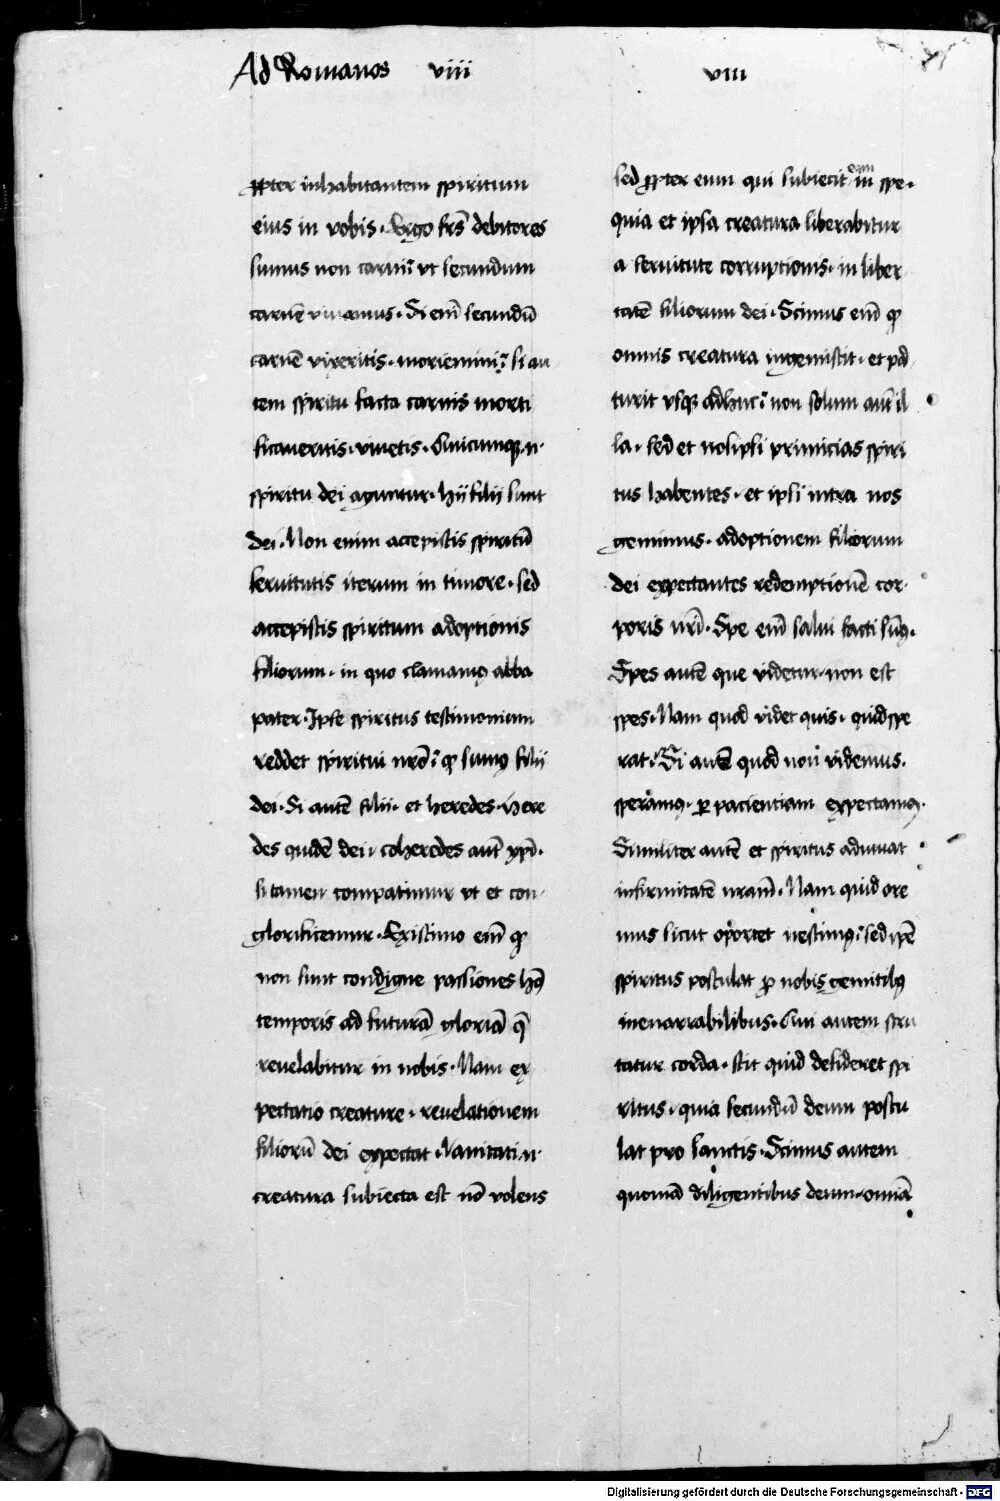 Ad Romanos viii
viii
ꝓpter inhabitantem spiritum
eius in vobis · Ergo frēs debitores
sumus non carni vt secundum
carnē viuamus · Si enī secundū
carnē vixeritis · moriemini si au
tem spiritu facta carnis morti
ficaueritis · viuetis · Quicumqꝫ ·n·
spiritu dei aguntur · hij filij sunt
dei · Non enim accepistis spiritū
seruitutis iterum in timore · sed
accepistis spiritum adoptionis
filiorum · in quo clamamꝰ abba
pater · Ipse spiritus testimonium
reddet spiritui nrō ꝙ sumꝰ filij
dei · Si autē filij · et heredes · here
des quidē dei · coheredes aut̄ xp̄i ·
si tamen compatimur vt et con
glorificemur · Existimo enī ꝙ
non sunt condigne passiones hꝰ
temporis ad futurā gloriā q̄
reuelabitur in nobis · Nam ex
pectatio creature · reuelationem
filiorū dei expectat · Vanitati ·n·
creatura subiecta est nō volens
sed ꝓpter eum qui subiecit eam in spe ·
quia et ipsa creatura liberabitur
a seruitute corruptionis · in liber
tatē filiorum dei · Scimus enī ꝙ
omnis creatura ingemiscit · et pa
turit vsqꝫ adhuc non solum aut̄ il
la · sed et nosipsi primicias spiri
tus habentes · et ipsi intra nos
gemimus · adoptionem filiorum
dei expectantes redemptionē cor
poris nrī · Spe enī salui facti sumꝰ ·
Spes autē que videtur · non est
spes · Nam quod videt quis · quid spe
rat · Si autē quod non videmus ·
speramꝰ · ꝑ pacientiam expectamꝰ ·
Similiter autē et spiritus adiuuat
infirmitatē nram̄ · Nam quid ore
mus sicut oportet nescimꝰ sed ipē
spiritus postulat ꝓ nobis gemitibꝰ
inenarrabilibus · Qui autem scru
tatur corda · scit quid desideret spi
ritus · quia secundū deum postu
lat pro sanctis · Scimus autem
quoniā diligentibus deum · omiā
Digitalisierung gefördert durch die Deutsche Forschungsgemeinschaft · DFG